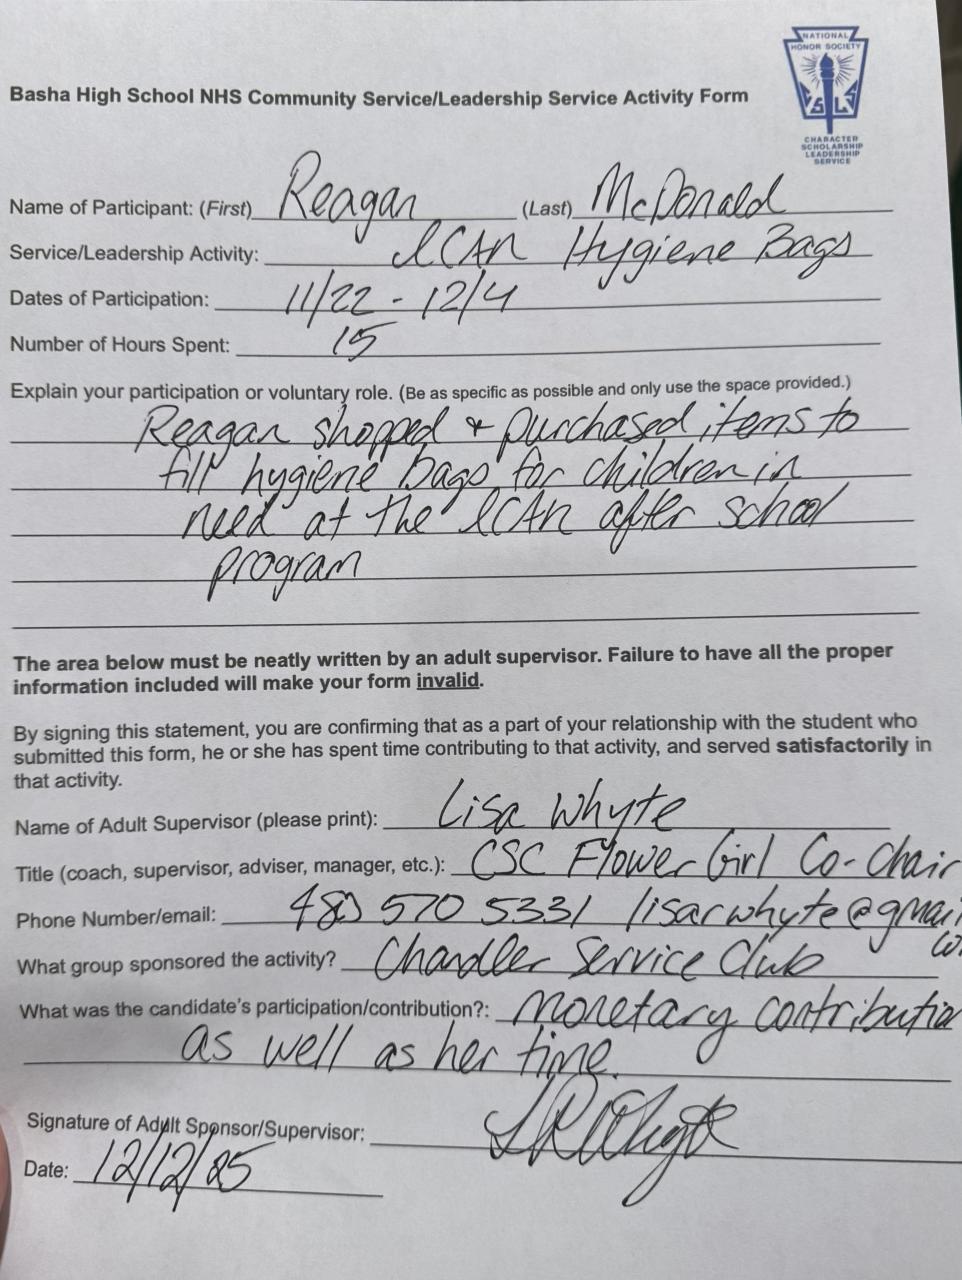 NATIONAL
HONOR SOCIETY
CHARACTER
SCHOLARSHIP
LEADERSHIP
SERVICE
Basha High School NHS Community Service/Leadership Service Activity Form
Name of Participant: (First) Reagan (Last) McDonald
Service/Leadership Activity: ICAN Hygiene Bags
Dates of Participation: 11/22 - 12/4
Number of Hours Spent: 15
Explain your participation or voluntary role. (Be as specific as possible and only use the space provided.)
Reagan shopped + purchased items to
fill hygiene bags for children in
need at the ICAN after school
program
The area below must be neatly written by an adult supervisor. Failure to have all the proper
information included will make your form invalid.
By signing this statement, you are confirming that as a part of your relationship with the student who
submitted this form, he or she has spent time contributing to that activity, and served satisfactorily in
that activity.
Name of Adult Supervisor (please print): Lisa Whyte
Title (coach, supervisor, adviser, manager, etc.): CSC Flower Girl Co-Chair
Phone Number/email: 480 570 5331 lisarwhyte@gmai
co
What group sponsored the activity? Chandler Service Club
What was the candidate's participation/contribution?: Monetary contributio
as well as her time.
Signature of Adult Sponsor/Supervisor: LRWhyte
Date: 12/12/25